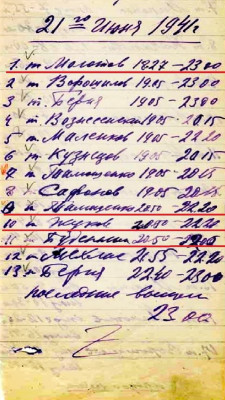 21го Июня 1941г
1. т Молотов 1827 – 2300
2 т Ворошилов 1905 – 2300
3 т. Берия 1905 – 2300
4 т Вознесенский 1905 – 2015
5 т Маленков 1905 – 2220
6 т Кузнецов 1905 – 2015
7 т Тимошенко 1905 – 2015
8 т Сафонов 1905 – 2015
9 т Тимошенко 2050 – 2220
10 т Жуков 2050 – 2220
11 т Буденный 2050 – 2200
12 т Мехлис 2155 – 2220
13 т Берия 2240 – 2300
последние вышли
23 00